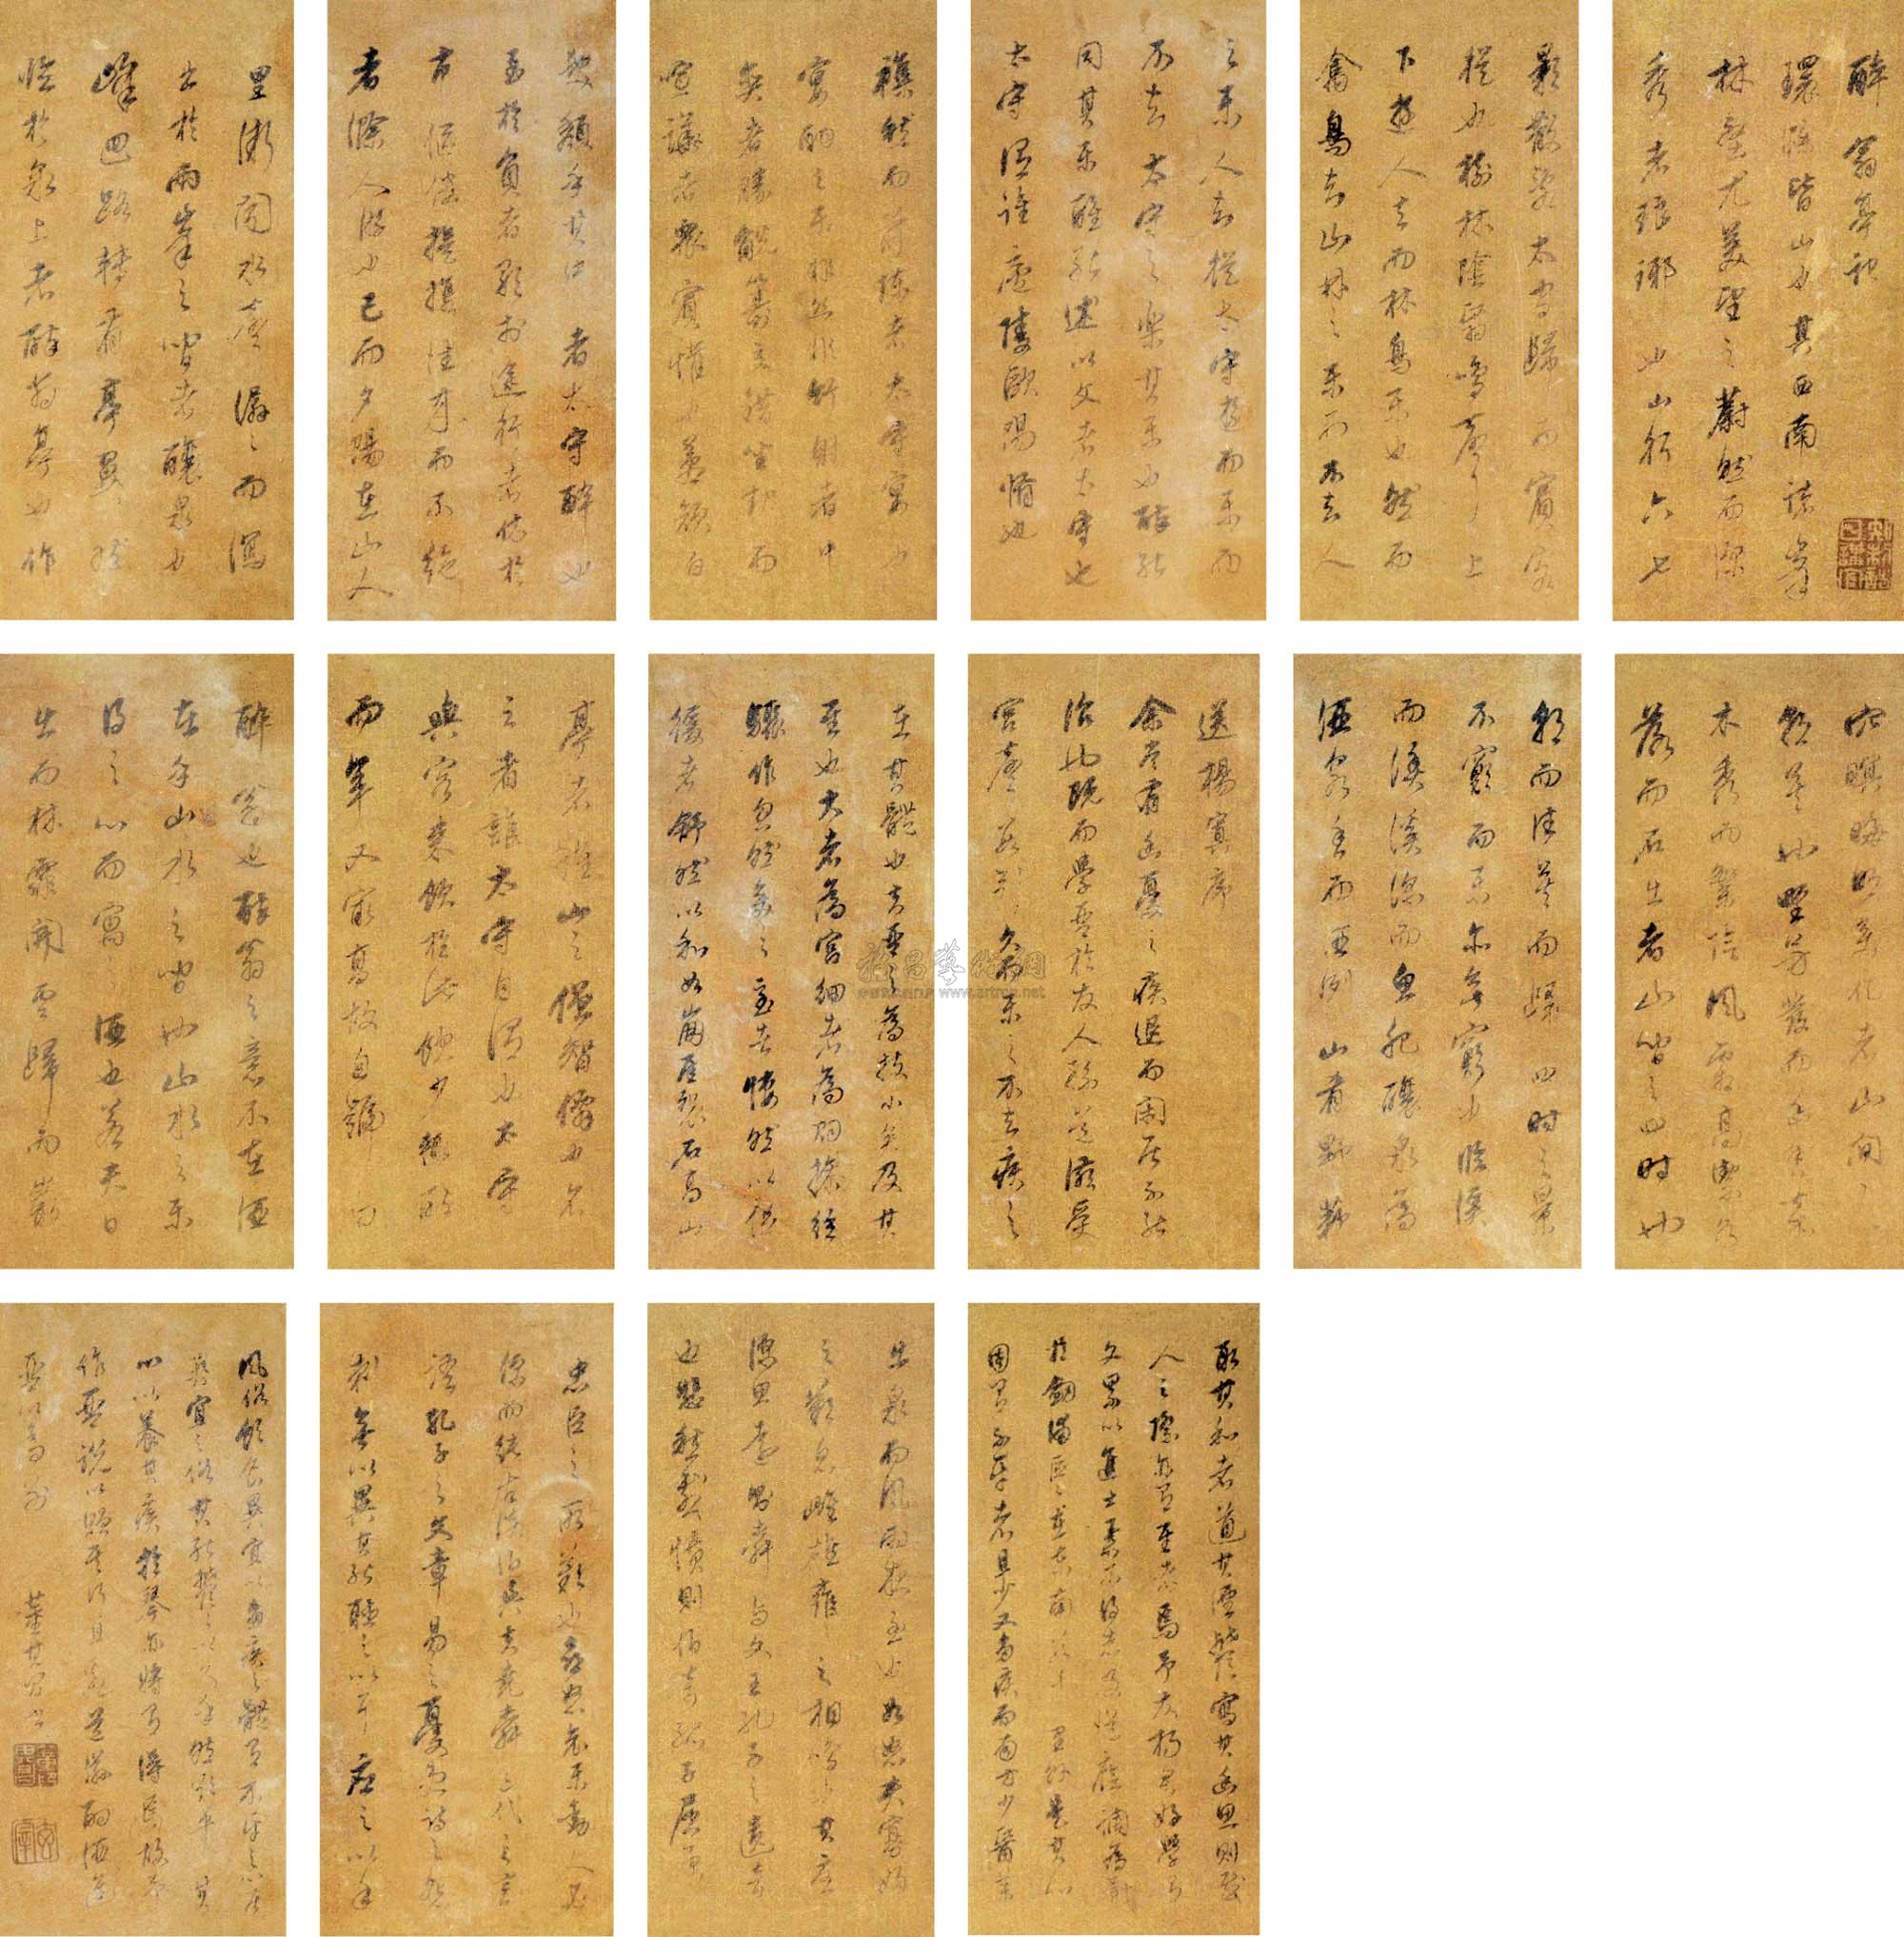 醉翁亭記
環滁皆山也其西南諸峯
林壑尤美望之蔚然而深
秀者琅琊也山行六七
影散亂太守歸而賓客
從也樹林陰翳鳴聲上
下遊人去而林鳥樂也然而
禽鳥知山林之樂而不知人
之樂人知從太守遊而樂而
不知太守之樂其樂也醉能
同其樂醒能述以文者太守也
太守謂誰廬陵歐陽脩也
然而前陳者太守宴也
宴酣之樂非絲非竹射者中
奕者勝觥籌交錯坐起而
喧譁者衆賓懽也蒼顏白
髮頹乎其中者太守醉也
至於負者歌於途行者休於
市傴僂提攜往來而不絕
者滁人游也已而夕陽在山人
里漸聞水聲潺々而瀉
出於兩峯之間者釀泉也
峰回路轉有亭翼然
臨於泉上者醉翁亭也作
穴暝晦明變化者山間之
朝暮也野芳發而幽香佳
木秀而繁陰風霜高潔水
落而石出者山間之四時也
朝而往暮而歸四時之景
不窮而樂亦無窮也臨溪
而漁溪深而魚肥釀泉為
酒泉香而酒洌山肴野蔌
送楊寘序
余嘗有幽憂之疾退而閒居不能
治也既而學琴於友人孫道滋受
宮聲數引久而樂之不知疾之
在其體也夫琴之為技小矣及其
至也大者為宮細者為羽操絃
驟作忽然變之急者悽然以促
緩者舒然以和如崩崖裂石高山
亭者誰山之僧智僊也名
之者誰太守自謂也太守
與客來飲於此飲少輒醉
而年又最高故自號曰
醉翁也醉翁之意不在酒
在乎山水之間也山水之樂
得之心而寓之酒也若夫日
出而林霏開雲歸而巖
取其和者道其堙鬱寫其幽思則感
人之際亦有至者焉予友楊君好學有
文累以進士舉不得志及從廕調為尉
於劍浦區々在東南數千里外是其心
固有不平者且少又多疾而南方少醫藥
出泉而風雨夜至也如怨夫寡婦
之歎息雌雄雍雍之相鳴也其憂
深思遠則舜與文王孔子之遺音
也悲愁感憤則伯奇孤子屈原
忠臣之所歎也喜怒哀樂動人必
深而純古淡泊與夫堯舜三代之言
語孔子之文章易之憂患詩之怨
刺無以異其能聽之以耳應之以手
風俗飲食異宜以多疾之體有不平之心居
異宜之俗其能鬱々以久乎然欲平其
心以養其疾於琴亦將有得焉故予
作琴說以贈其行且邀道滋酌酒進
琴以為別 董其昌書
www.artron.net